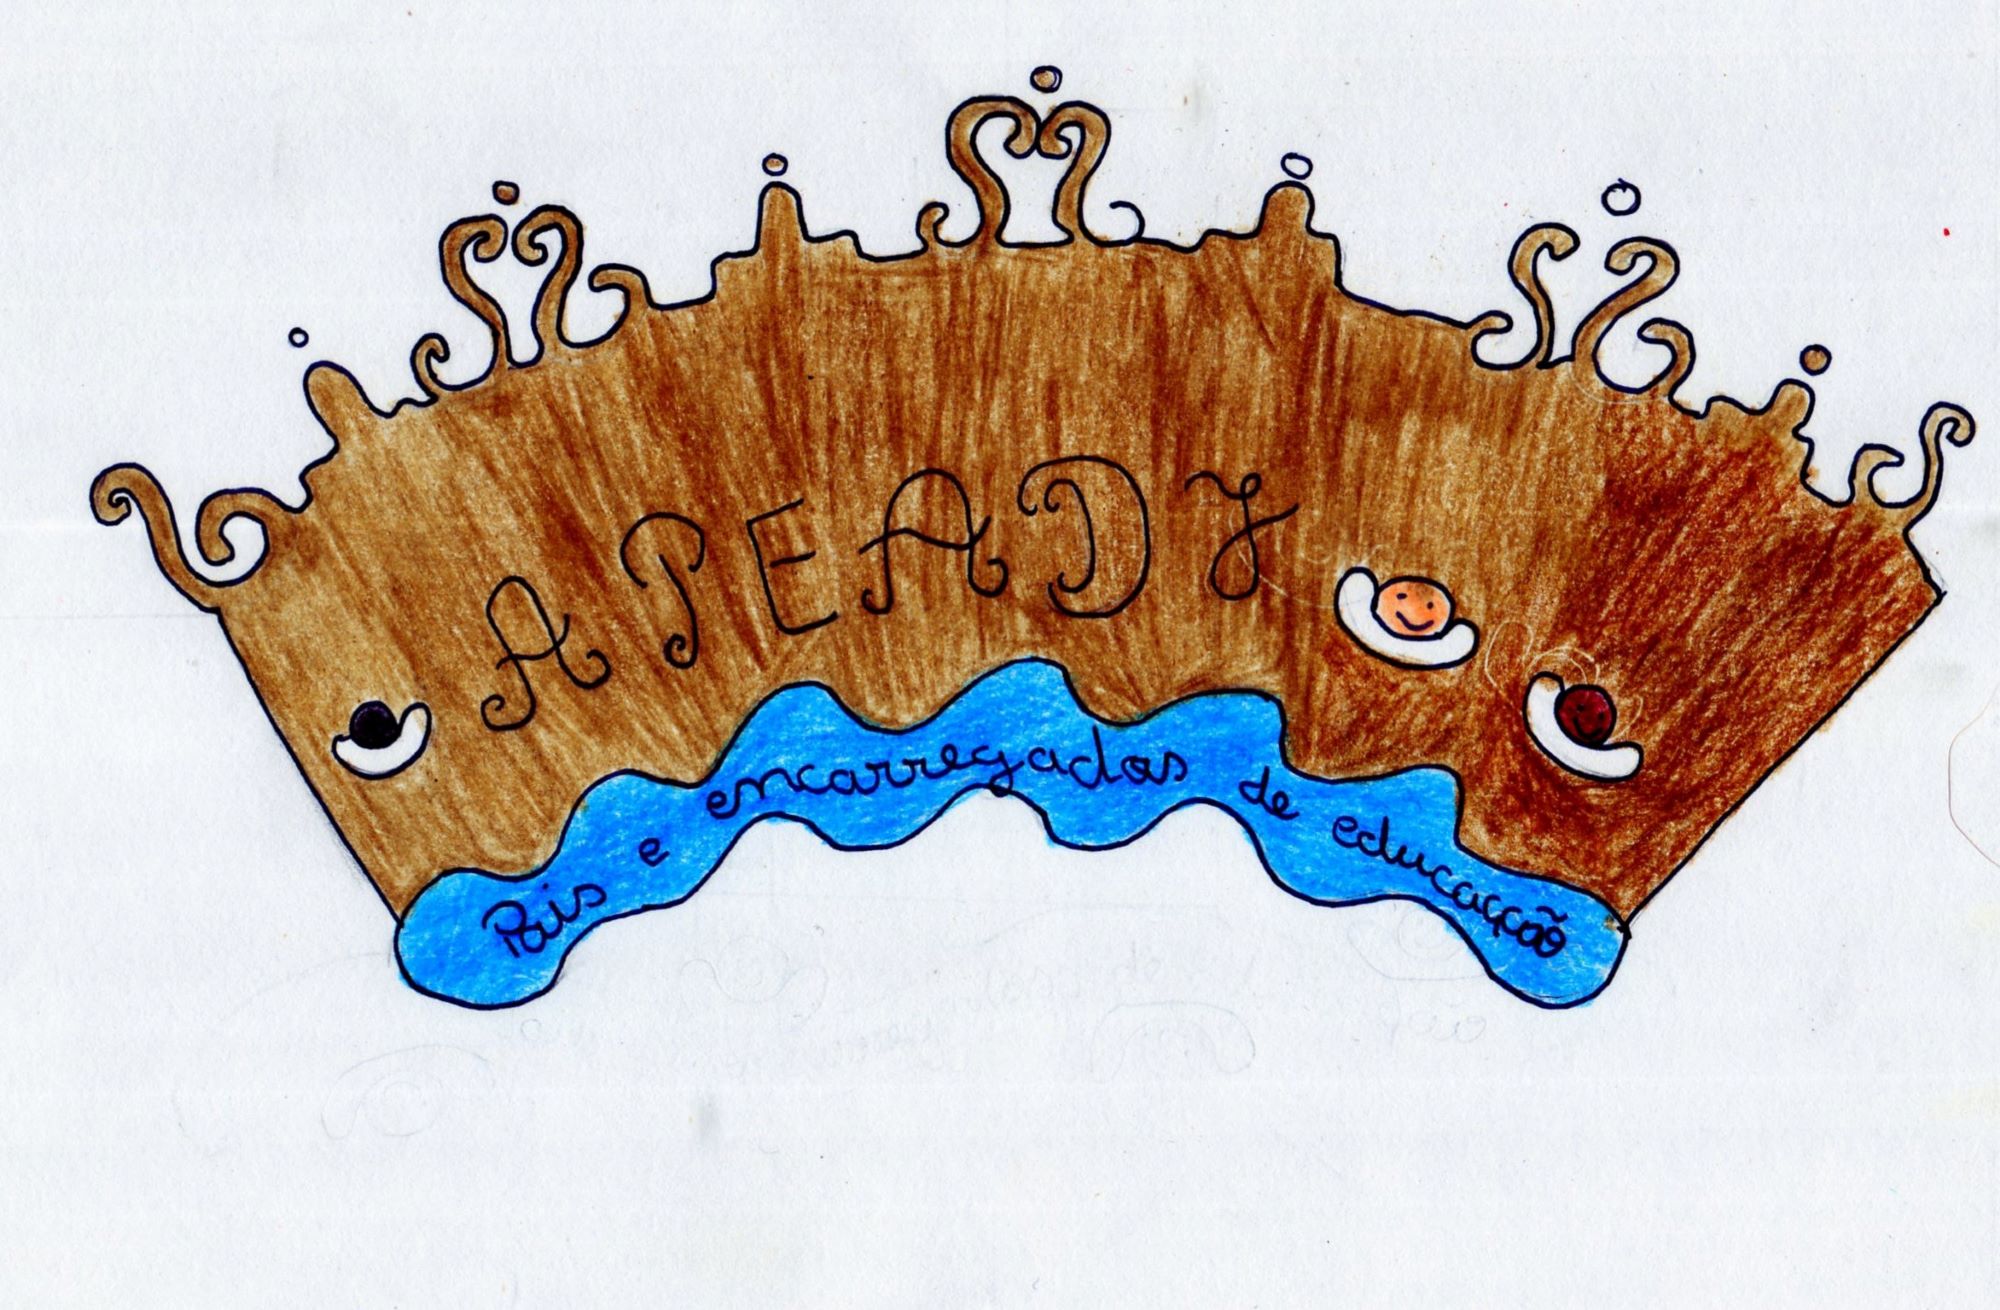 APEADJ
Pais e encarregados de educação